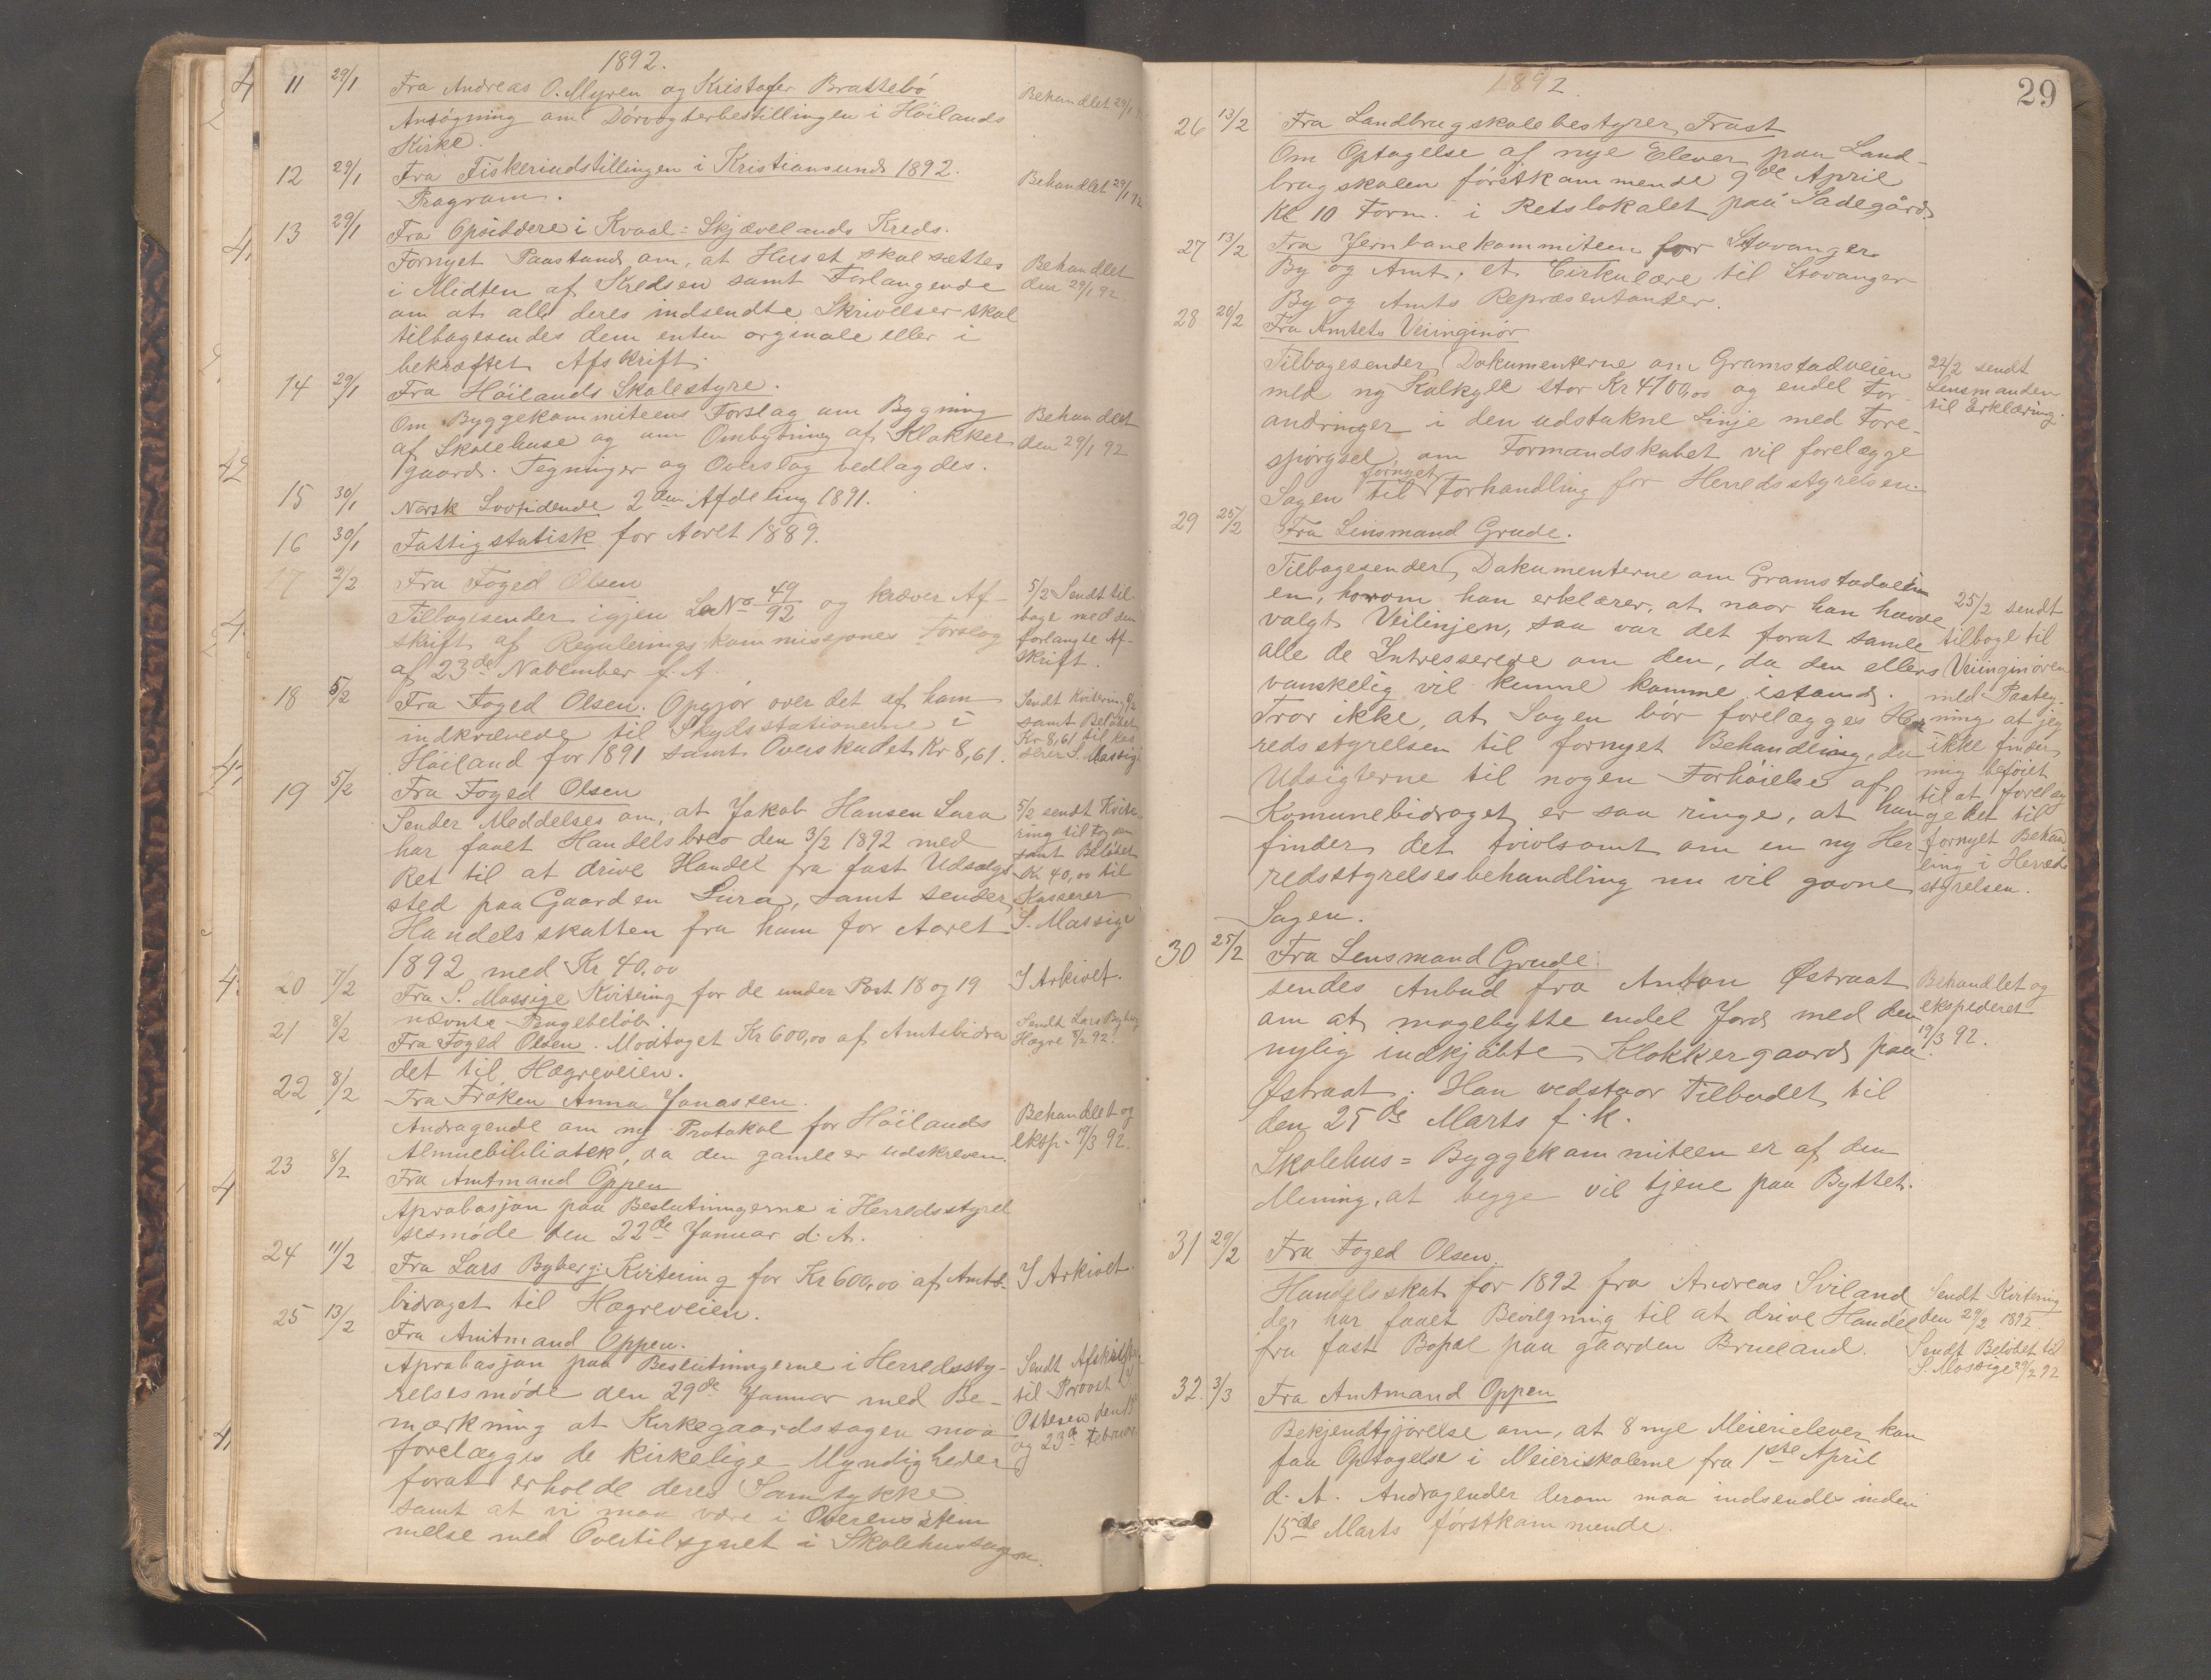 1892.
11 29/1 Fra Andreas O. Myren og Kristofer Brattebö
Ansögning om Dörvogterbestillingen i Höilands
Kirke.
Behandlet 29/1
12 29/1 Fra Fiskeriudstillingen i Kristiansund 1892.
Program.
Behandlet 29/1 92
13 29/1 Fra Opsiddere i Kvaal= Skjævelands Kreds.
Fornyet Paastand om, at Huset skal sættes
i Midten af Kredsen samt Forlangende
om at alle deres indsendte Skrivelser skal
tilbagesendes dem enten orginale eller i
bekræftet Afskrift.
Behandlet
den 29/1 92.
14 29/1 Fra Höilands Skolestyre.
Om Byggekommiteens Forslag om Bygning
af Skolehuse og om Ombytning af Klokker
gaard. Tegninger og Overslag vedlagdes.
Behandlet
den 29/1 92
15 30/1 Norsk Lovtidende 2den Afdeling 1891.
16 30/1 Fattigstatistik for Aaret 1889.
17 2/2 Fra Foged Olsen
Tilbagesender igjen No 49/92 og kræver Af-
skrift af Reguleringskommissjones Forslag
af 23de November f. A.
5/2 Sendt til
bage med den
forlangte Af-
skrift.
18 5/2 Fra Foged Olsen. Opgjör over det af ham
indkrævede til Skydsstationerne i
Höiland for 1891 samt Overskudet Kr 8,61.
Sendt Kvitering 5/2
samt Belöbet
Kr 8,61 til Kas
serer S. Massig
19 5/2 Fra Foged Olsen
Sender Meddelses om, at Jakob Hansen Lura
har faaet Handelsbrev den 3/2 1892 med
Ret til at drive Handel fra fast Udsalgs
sted paa Gaarden Lura, samt sender
Handelsskatten fra ham for Aaret
1892 med Kr 40,00
5/2 sendt Kvite
ring til
samt Belöbet
Kr 40,00 til
Kasserer
S. Massige
20 7/2 Fra S. Massige Kvitering for de under Post 18 og 19
nævnte Pengebelöb.
I Arkivet.
21 8/2 Fra Foged Olsen. Modtaget Kr 600,00 af Amtsbidra
det til Hægreveien.
Sendt Lars Byberg
Hægre 8/2 92.
22 8/2 Fra Fröken Anna Jonassen.
Andragende om ny Protokol for Höilands
Almuebibliotek, da den gamle er udskreven.
Behandlet og
eksp. 19/3 92.
23 8/2 Fra Amtmand Oppen
Aprobasjon paa Beslutningerne i Herredsstyrel
sesmöde den 22de Januar d. A.
24 11/2 Fra Lars Byberg: Kvitering for Kr 600,00 af Amts-
bidraget til Hægreveien.
I Arkivet.
25 13/2 Fra Amtmand Oppen.
Aprobasjon paa Beslutningerne i Herredssty-
relsesmöde den 29de Januar med Be-
mærkning at Kirkegaardssagen maa
forelægges de kirkelige Myndigheder
forat erholde deres Samtykke
samt at vi maa være i Overensstem
melse med Overtilsynet i Skolehussagen.
Sendt Afskrift
til Provst
Ottesen den 15
og 23de Februar
29
1892.
26 13/2 Fra Landbrugskolebestyrer Trast
Om Optagelse af nye Elever paa Land-
brugskolen förstkommende 9de April
Kl 10 Form. i Retslokalet paa Sadegård.
27 13/2 Fra Jernbanekommiteen for Stavanger
By og Amt, et Cirkulære til Stavanger
By og Amts Repræsentanter.
28 20/2 Fra Amtets Veiinginör
Tilbagesender Dokumenterne om Gramstadveien
med ny Kalkyle stor Kr 4100,00 og endel For-
andringer i den udstukne Linje med Fore-
spörgsel, om Formandskabet vil forelægge
Sagen til fornyet Forhandling for Herredsstyrelsen.
22/2 sendt
Lensmanden
til Erklæring.
29 25/2 Fra Lensmand Grude.
Tilbagesender Dokumenterne om Gramstadvei
en, hvorom han erklærer, at naar han havde
valgt Veilinjen, saa var det forat samle
alle de Intresserede om den, da den ellers
vanskelig vil kunne komme istand.
Tror ikke, at Sagen bör forelægges Her
redsstyrelsen til fornyet Behandling, da
Udsigterne til nogen Forhöielse af
Komunebidraget er saa ringe, at han
finder det tvivlsomt om en ny Her
redsstyrelsesbehandling nu vil gavne
Sagen.
25/2 sendt
tilbage til
Veiinginören
med Paateg-
ning at jeg
ikke finder
mig beföiet
til at forelæg
ge det til
fornyet Behand
ling i Herreds
styrelsen.
30 25/2 Fra Lensmand Grude.
sendes Anbud fra Anton Østraat
om at magebytte endel Jord med den
nylig indkjöbte Klokkergaard paa
Østraat. Han vedstaar Tilbudet til
den 25de Marts f. k.
Skolehus= Byggekommiteen er af den
Mening, at begge vil tjene paa Byttet.
Behandlet og
ekspederet
19/3 92.
31 29/2 Fra Foged Olsen.
Handelsskat for 1892 fra Andreas Sviland
der har faaet Bevilgning til at drive Handel
fra fast Bopæl paa gaarden Brueland.
Sendt Kvitering
den 29/2 1892
Sendt Belöbet til
S. Massige 29/2 92
32. 3/3 Fra Amtmand Oppen
Bekjendtgjörelse om, at 8 nye Meierielever kan
faa Optagelse i Meieriskolerne fra 1ste April
d. A. Andragender derom maa indsendes inden
15de Marts förstkommende.